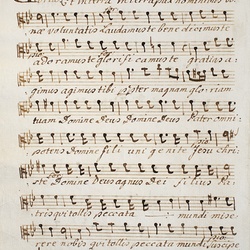 Et in terra pax hominibus bo-
næ voluntatis Laudamus te benedicimus te
adoramus te glorificamus te gratias a-
gimus agimus tibi propter magnam gloriam
tuam Domine Deus Domine Deus Pater omni-
potens Domine fili unigenite Jesu Chri-
ste Domine Deus agnus Dei filius Pa-
tris qui tollis peccata mundi mise-
rere nobis qui tollis peccata mundi suscipe